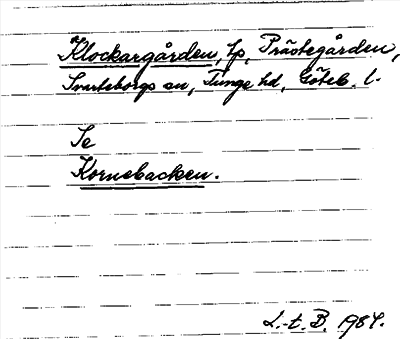 Klockargården, lp, Prästegården,
Svarteborgs sn, Tunge hd, Göteb. l.
Se
Kornebacken.
L.-t. B. 1984.